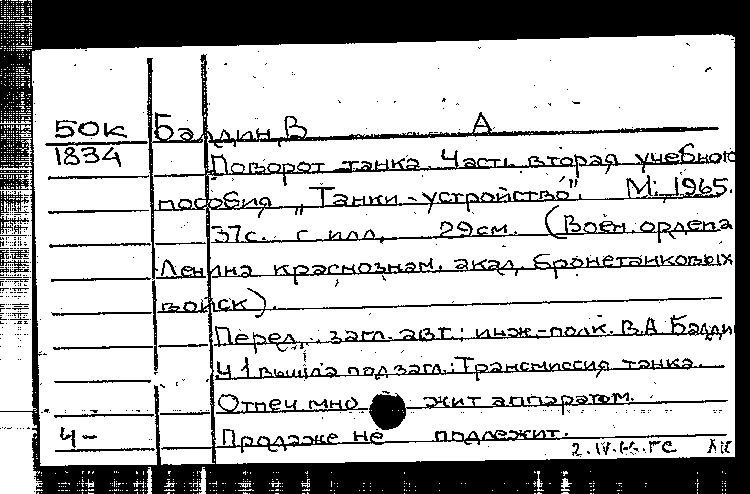 50к Балдин, В А
1834 Поворот танка. Часть вторая учебного
пособия „Танки - устройство". М., 1965.
37с. с илл, 29см. (Воен. ордена
Ленина краснознам. акад. бронетанковых
войск).
Перед. загл. авт.: инж.-полк. В.А Балди
Ч 1 вышла под загл.: Трансмиссия танка.
Отпеч мно жит аппаратом.
Ч- Продаже не подлежит.
2.IV.66.ГС